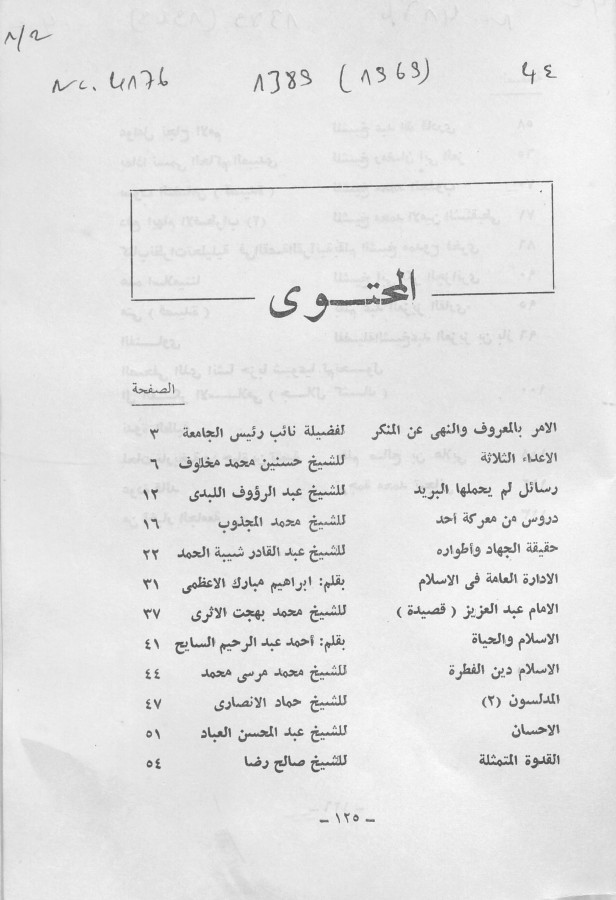 1/2
Nc. 4176 1389 (1969) 44
المحتوى
الصفحة
الامر بالمعروف والنهى عن المنكر لفضيلة نائب رئيس الجامعة ٣
الاعداء الثلاثة للشيخ حسنين محمد مخلوف ٦
رسائل لم يحملها البريد للشيخ عبد الرؤوف اللبدى ١٢
دروس من معركة أحد للشيخ محمد المجذوب ١٦
حقيقة الجهاد وأطواره للشيخ عبد القادر شيبة الحمد ٢٢
الادارة العامة فى الاسلام بقلم: ابراهيم مبارك الاعظمى ٣١
الامام عبد العزيز ( قصيدة ) للشيخ محمد بهجت الاثرى ٣٧
الاسلام والحياة بقلم: أحمد عبد الرحيم السايح ٤١
الاسلام دين الفطرة للشيخ محمد مرسى محمد ٤٤
المدلسون (٢) للشيخ حماد الانصارى ٤٧
الاحسان للشيخ عبد المحسن العباد ٥١
القدوة المتمثلة للشيخ صالح رضا ٥٤
– ١٢٥ –